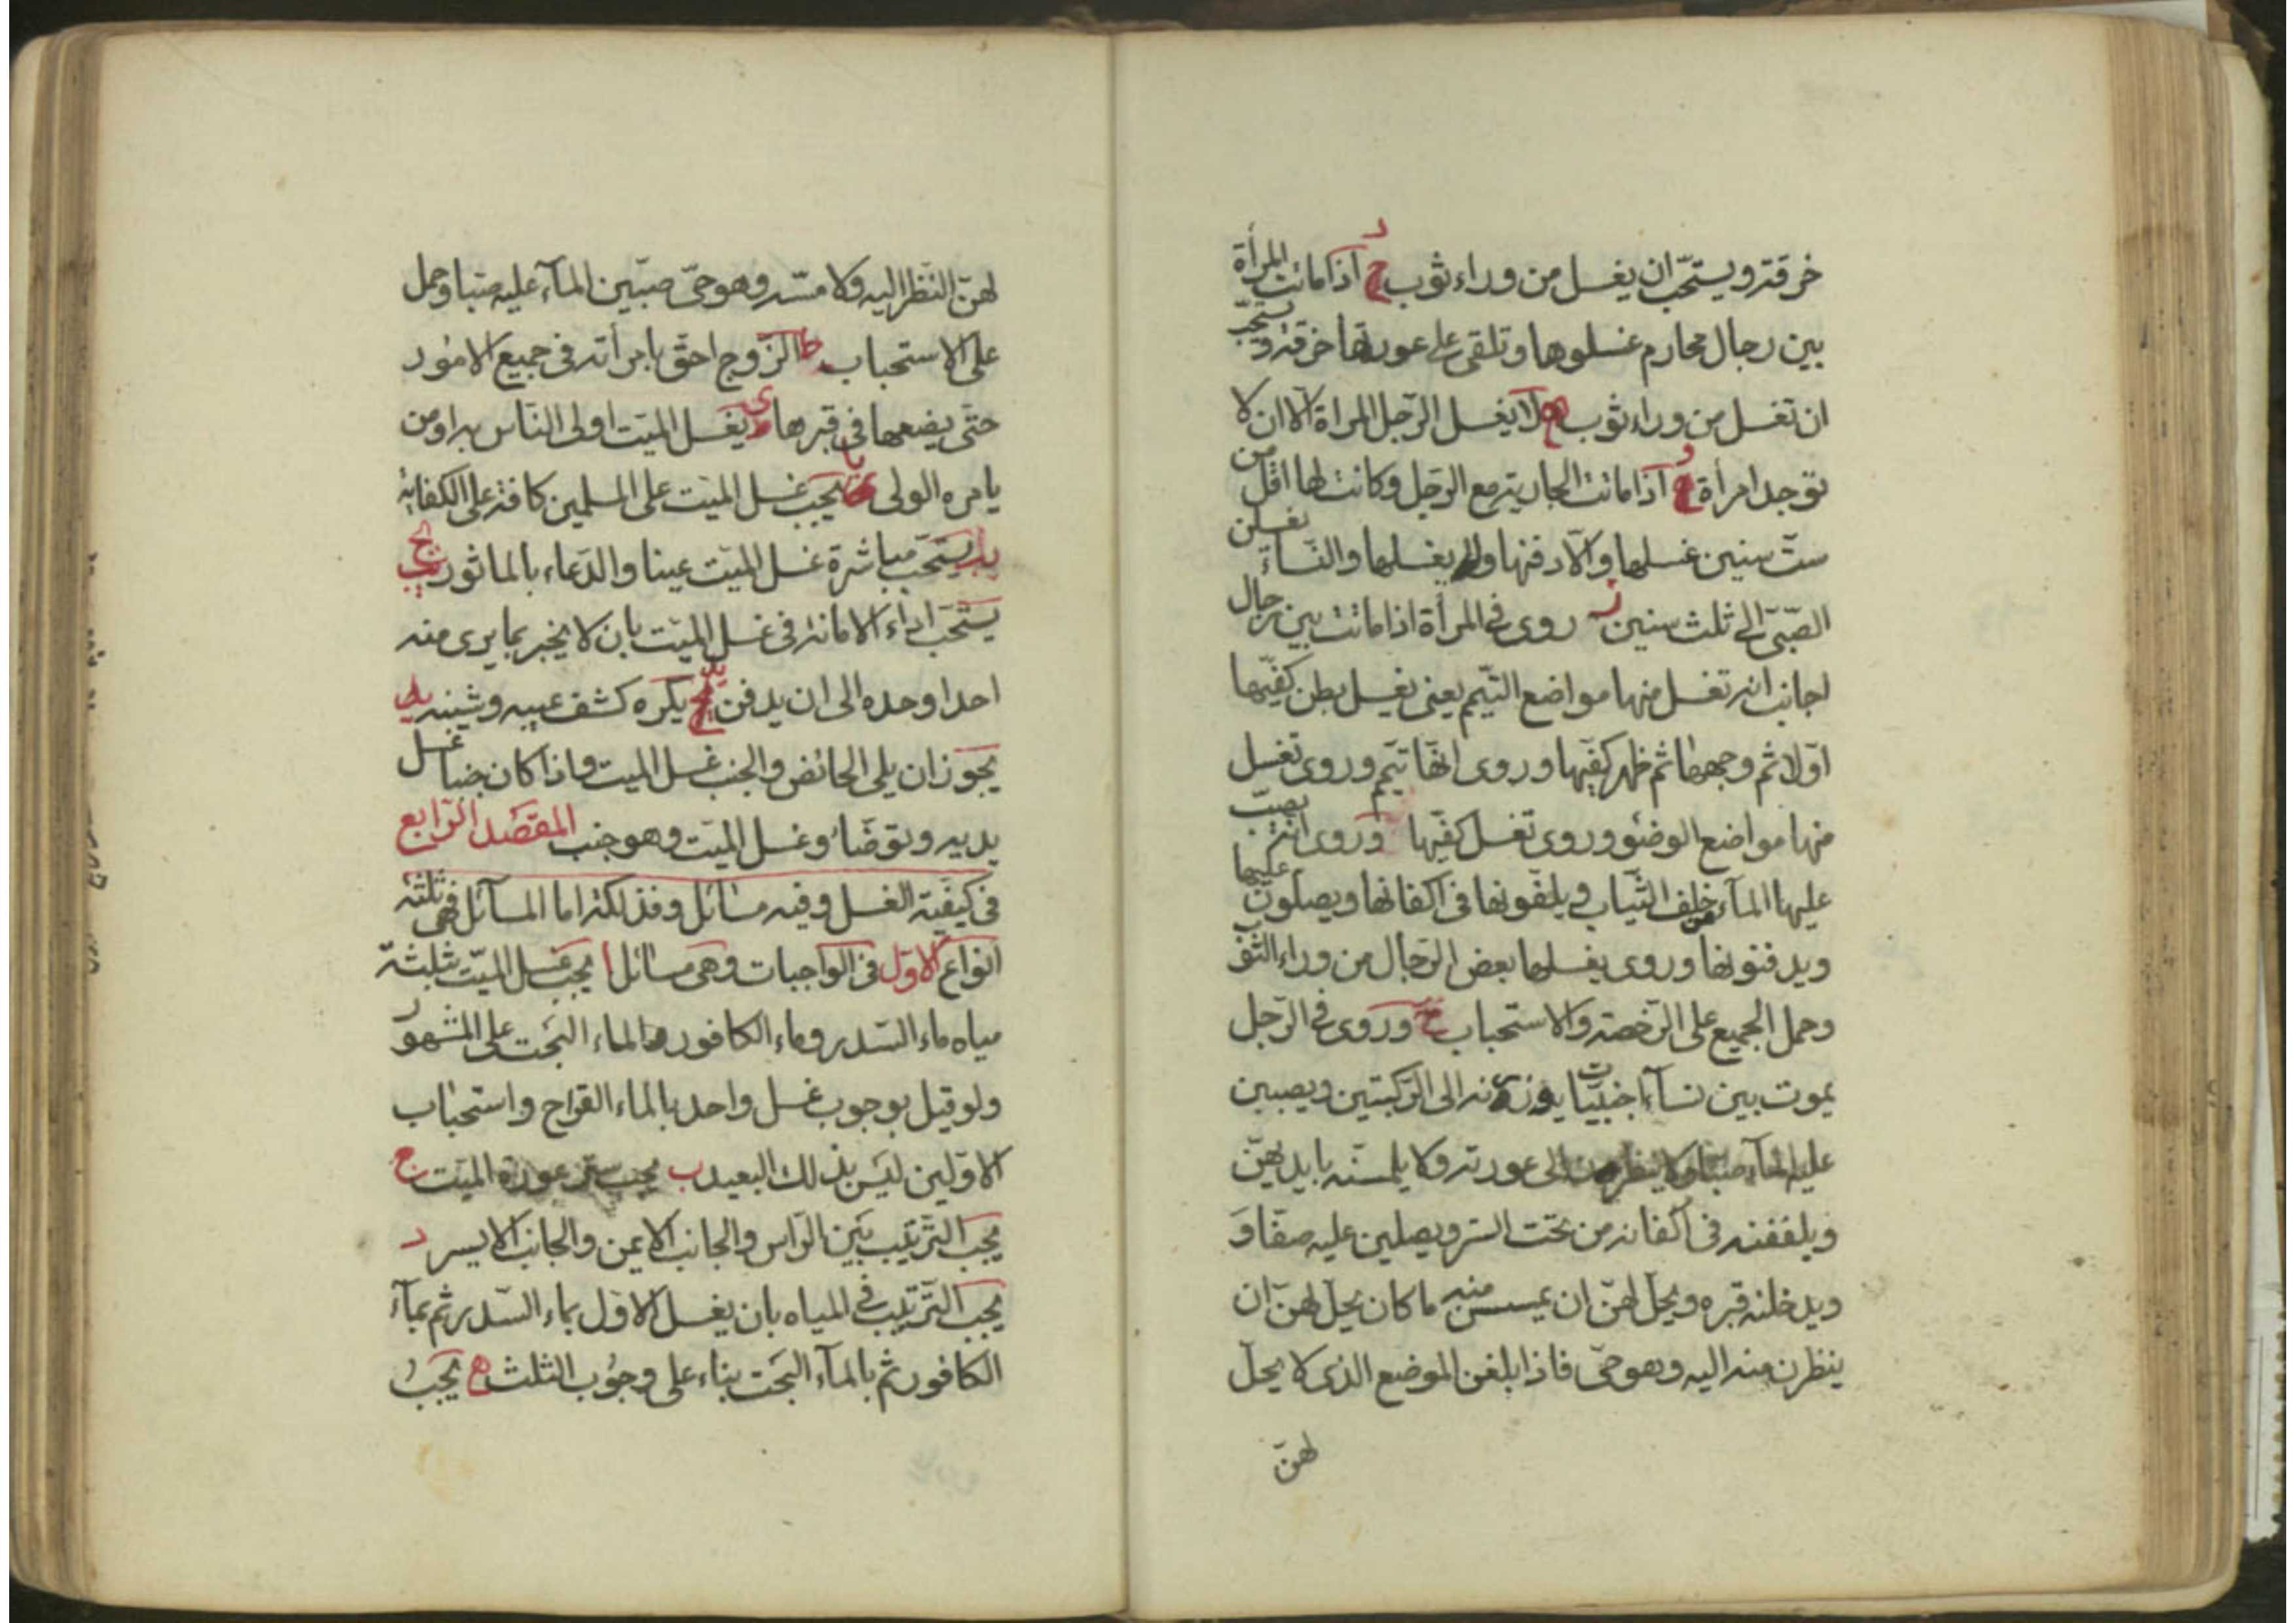 خرقة ويستحب ان يغسل من وراء ثوب د اذا ماتت المرأة
بين رجال محارم غسلوها وتلقى على عورتها خرقة ويستحبّ
ان تغسل من وراء ثوب ه لا يغسل الرّجل المراة الّا ان لا
توجد امرأة و اذا ماتت الجارية مع الرّجل وكانت لها اقل من
ستّ سنين غسلها والّا دفنها ولم يغسلها والنّساء يغسلن
الصّبىّ الى ثلث سنين ز روى فى المرأة اذا ماتت بين رجال
اجانب انه تغسل منها مواضع التيّمم يعنى يغسل بطن كفّيها
اوّلا ثم وجهها ثم ظهر كفّيها وروى انّها تيمّم وروى تغسل
منها مواضع الوضوء وروى تغسل كفّيها وروى انّه يصبّ
عليها المآء من خلف الثّياب ويلفّونها فى اكفانها ويصلّون عليها
ويدفنونها وروى يغسلها بعض الرّجال من وراء الثّوب
وحمل الجميع على الرّخصة والاستحباب ح وروى فى الرّجل
يموت بين نسآء اجنبيّات يوزرنه الى الرّكبتين ويصببن
عليه المآء صبّا ولا ينظرن الى عورته ولا يلمسنه بايديهنّ
ويلففنه فى اكفانه من تحت الستر ويصلين عليه صفّا و
ويدخلنه قبره ويحلّ لهنّ ان يمسسن منه ما كان يحلّ لهنّ ان
ينظرن منه اليه وهو حىّ فاذا بلغن الموضع الذى لا يحلّ
لهنّ
لهنّ النّظر اليه ولا مسّه وهو حىّ صببن المآء عليه صبّا وحمل
على الاستحباب ط الزّوج احقّ بامرأته فى جميع الامور
حتّى يضعها فى قبرها ى يغسل الميّت اولى النّاس به او من
يامره الولى يا يجب غسل الميّت على المسلمين كافة على الكفاية
يب يستحبّ مباشرة غسل الميّت عينا والدّعاء بالماثور يج
يستحبّ اداء الامانة فى غسل الميّت بان لا يخبر بما يرى منه
احدا وحده الى ان يدفن يد يكره كشف عيبه وشينه يه
يجوز ان يلى الحائض والجنب غسل الميت واذا كان جنبا غسل
يديه وتوضّأ وغسل الميّت وهو جنب المقصد الرّابع
فى كيفيّة الغسل وفيه مسائل وفذلكة اما المسآئل فهى ثلثة
انواع الاوّل فى الواجبات وهى مسائل ا يجب غسل الميّت بثلثة
مياه ماء السّدر وماء الكافور والماء البحت على المشهور
ولو قيل بوجوب غسل واحد بالماء القراح واستحباب
الاوّلين ليس بذلك البعيد ب يجب ستر عورة الميّت ج
يجب التّرتيب بين الرّاس والجانب الايمن والجانب الايسر د
يجب التّرتيب فى المياه بان يغسل الاوّل بماء السّدر ثم بمآء
الكافور ثم بالمآء البحت بناء على وجوب الثلث ه يجب